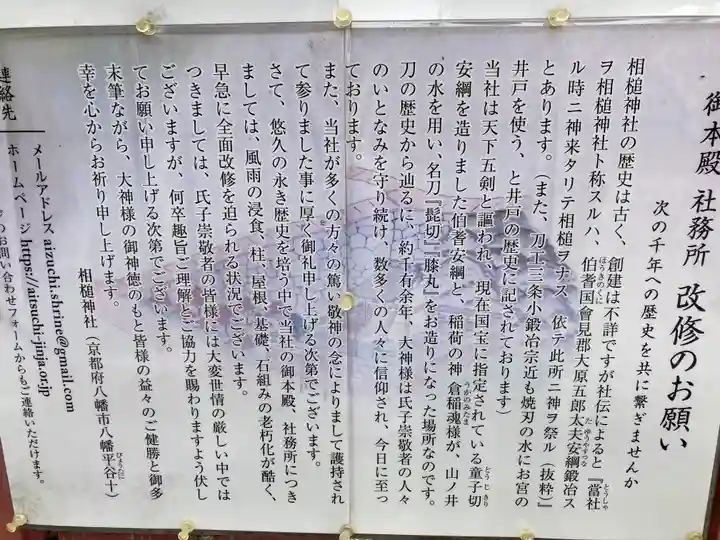 御本殿 社務所 改修のお願い
次の千年への歴史を共に繋ぎませんか
相槌神社の歴史は古く、創建は不詳ですが社伝によると『當社
ヲ相槌神社ト称スルハ、伯耆国會見郡大原五郎太夫安綱鍛冶ス
ル時ニ神来タリテ相槌ヲナス 依テ此所ニ神ヲ祭ル(抜粋)』
とあります。(また、刀工三条小鍛冶宗近も焼刃の水にお宮の
井戸を使う、と井戸の歴史に記されております)
当社は天下五剣と謳われ、現在国宝に指定されている童子切
安綱を造りました伯耆安綱と、稲荷の神 倉稲魂様が、山ノ井
の水を用い、名刀『髭切』『膝丸』をお造りになった場所なのです。
刀の歴史から辿るに、約千有余年、大神様は氏子崇敬者の人々
のいとなみを守り続け、数多くの人々に信仰され、今日に至っ
ております。
また、当社が多くの方々の篤い敬神の念によりまして護持され
て参りました事に厚く御礼申し上げる次第でございます。
さて、悠久の永き歴史を培う中で当社の御本殿、社務所につき
ましては、風雨の浸食、柱、屋根、基礎、石組みの老朽化が酷く、
早急に全面改修を迫られる状況でございます。
つきましては、氏子崇敬者の皆様には大変世情の厳しい中では
ございますが、何卒趣旨ご理解とご協力を賜わりますよう伏し
てお願い申し上げる次第でございます。
末筆ながら、大神様の御神徳のもと皆様の益々のご健勝と御多
幸を心からお祈り申し上げます。
相槌神社(京都府八幡市八幡平谷十)
連絡先
メールアドレス aizuchi.shrine@gmail.com
ホームページ https://aisuchi-jinja.or.jp
のお問い合わせフォームからもご連絡いただけます。